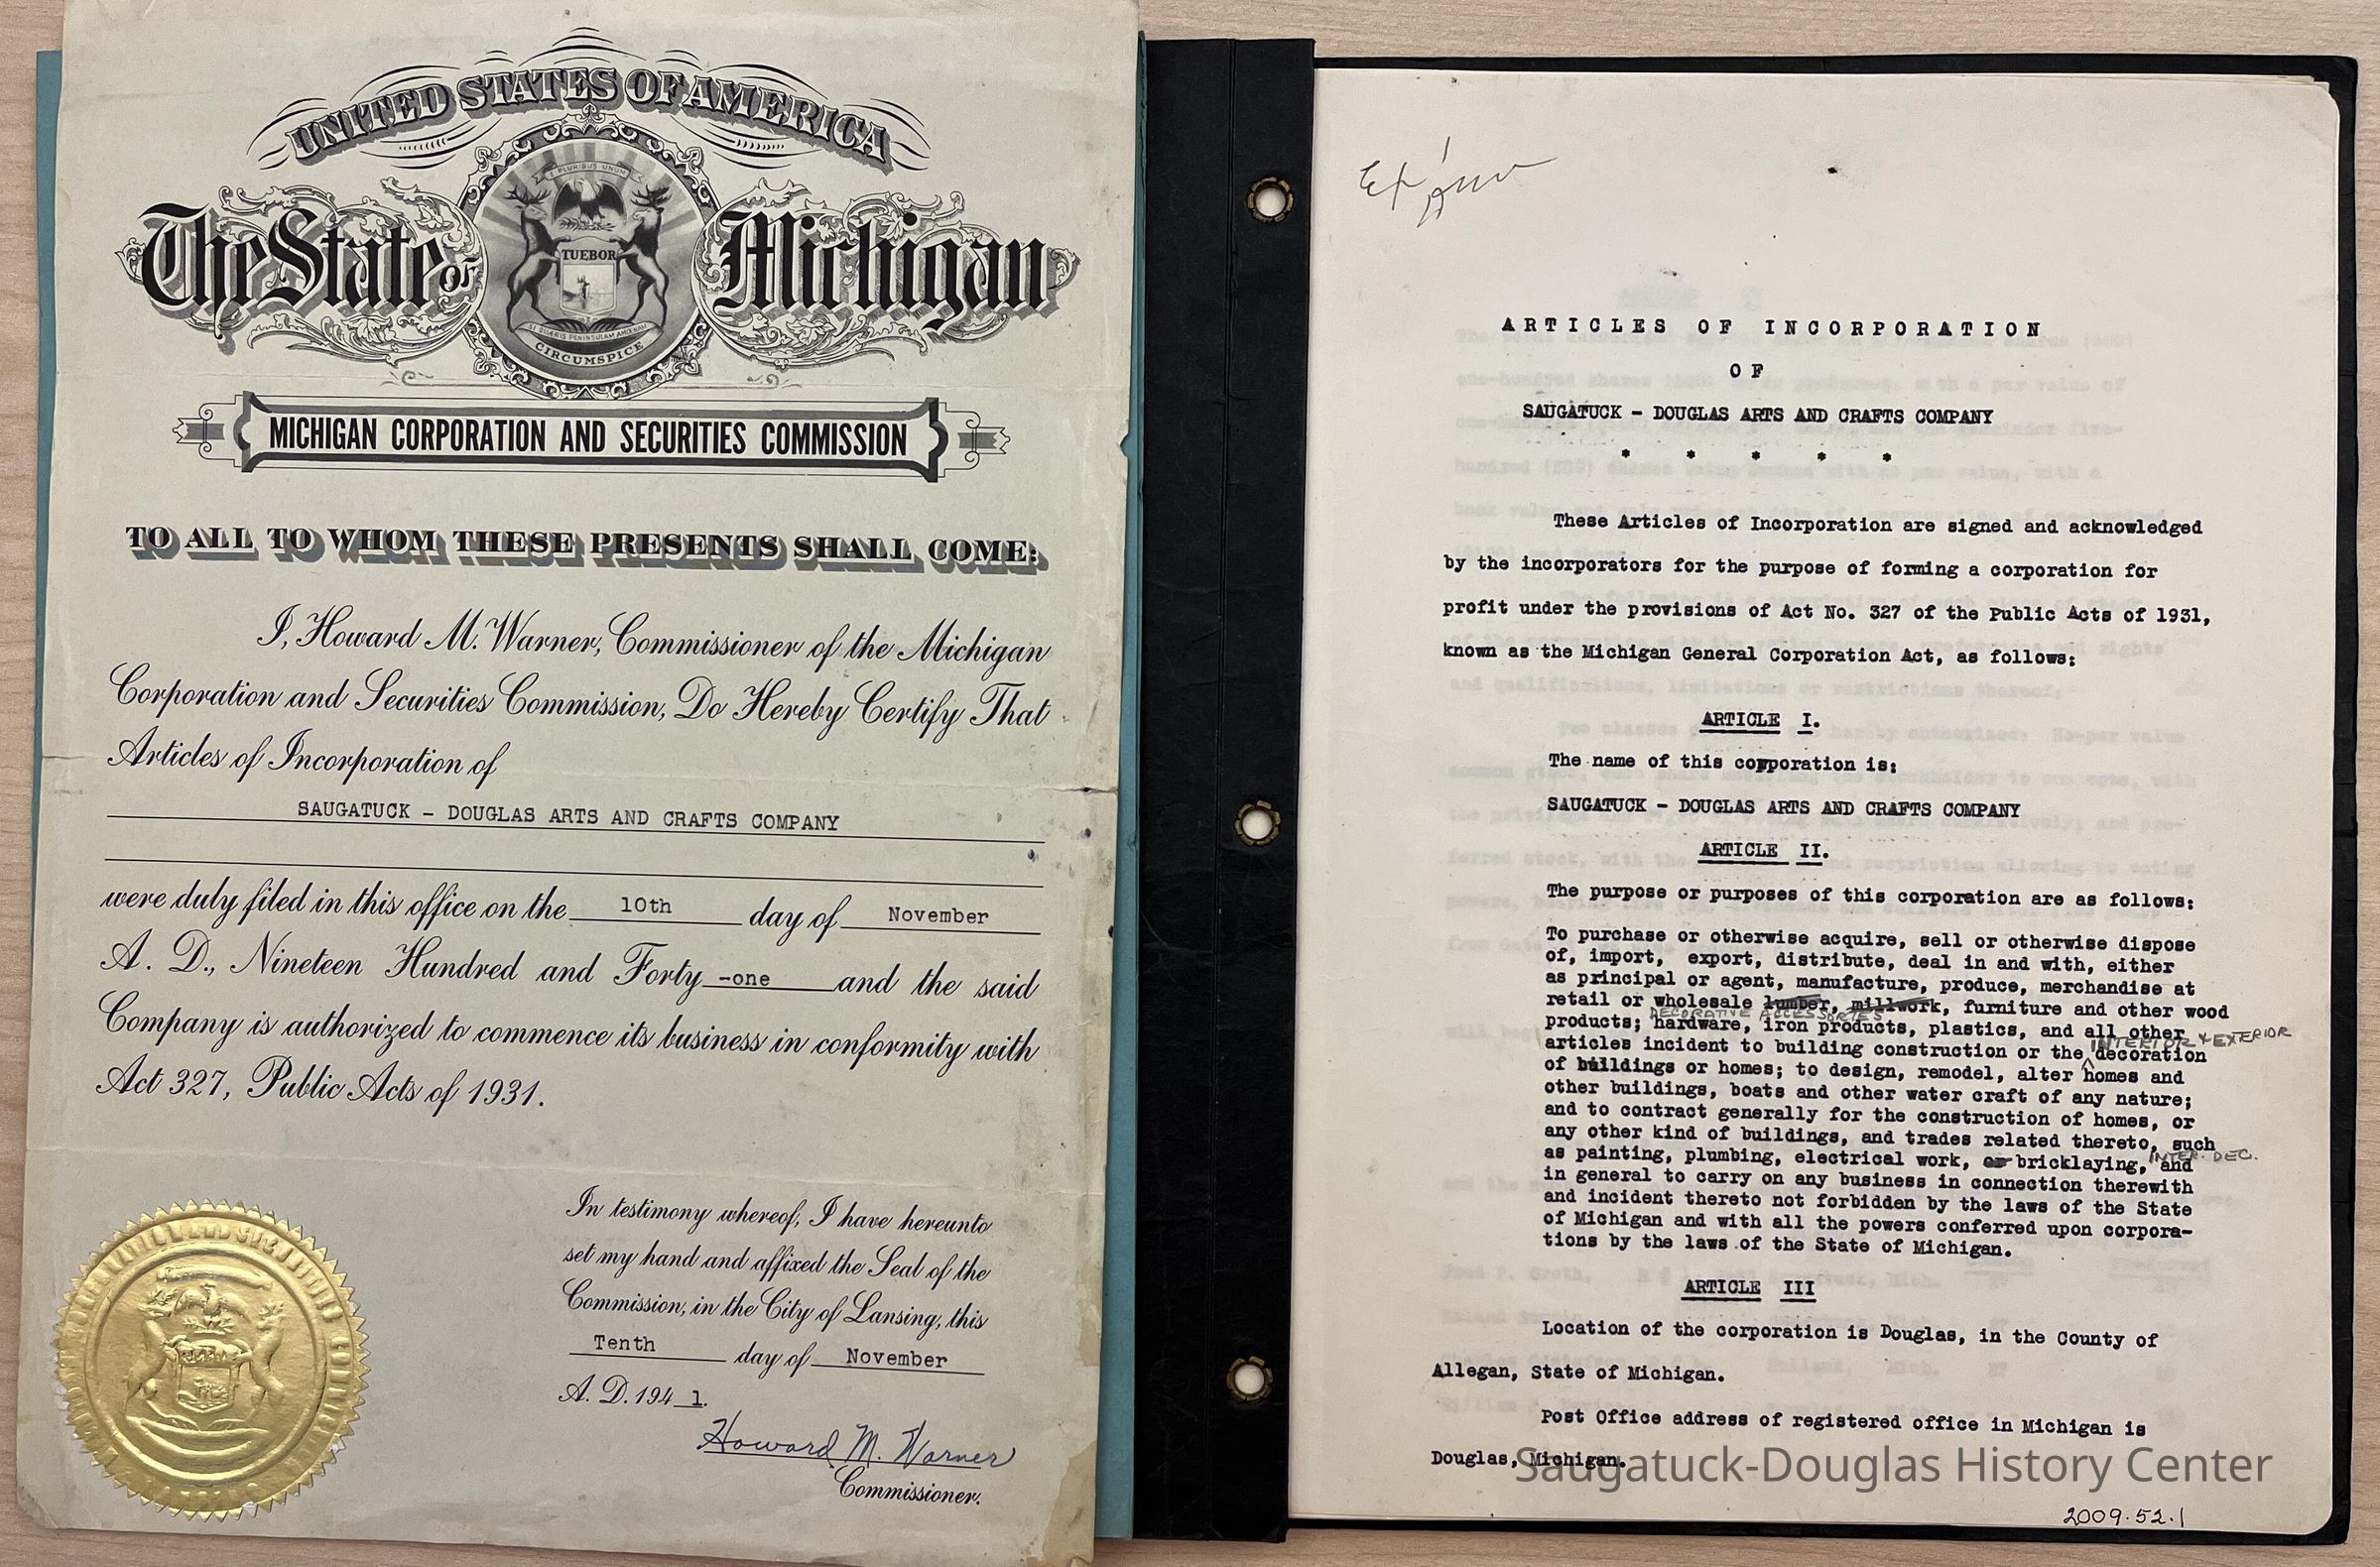 UNITED STATES OF AMERICA
The State of Michigan
E PLURIBUS UNUM
TUEBOR
SI QUAERIS PENINSULAM AMOENAM
CIRCUMSPICE
MICHIGAN CORPORATION AND SECURITIES COMMISSION
TO ALL TO WHOM THESE PRESENTS SHALL COME:
I, Howard M. Warner, Commissioner of the Michigan
Corporation and Securities Commission, Do Hereby Certify That
Articles of Incorporation of
SAUGATUCK - DOUGLAS ARTS AND CRAFTS COMPANY
were duly filed in this office on the 10th day of November
A. D., Nineteen Hundred and Forty -one and the said
Company is authorized to commence its business in conformity with
Act 327, Public Acts of 1931.
In testimony whereof, I have hereunto
set my hand and affixed the Seal of the
Commission, in the City of Lansing, this
Tenth day of November
A. D. 194 1.
Howard M. Warner
Commissioner.
ARTICLES OF INCORPORATION
OF
SAUGATUCK - DOUGLAS ARTS AND CRAFTS COMPANY
* * * * *
These Articles of Incorporation are signed and acknowledged
by the incorporators for the purpose of forming a corporation for
profit under the provisions of Act No. 327 of the Public Acts of 1931,
known as the Michigan General Corporation Act, as follows:
ARTICLE I.
The name of this corporation is:
SAUGATUCK - DOUGLAS ARTS AND CRAFTS COMPANY
ARTICLE II.
The purpose or purposes of this corporation are as follows:
To purchase or otherwise acquire, sell or otherwise dispose
of, import, export, distribute, deal in and with, either
as principal or agent, manufacture, produce, merchandise at
retail or wholesale lumber, millwork, furniture and other wood
DECORATIVE ACCESSORIES
products; hardware, iron products, plastics, and all other
INTERIOR & EXTERIOR
articles incident to building construction or the decoration
of buildings or homes; to design, remodel, alter homes and
other buildings, boats and other water craft of any nature;
and to contract generally for the construction of homes, or
any other kind of buildings, and trades related thereto, such
INTER. DEC.
as painting, plumbing, electrical work, or bricklaying, and
in general to carry on any business in connection therewith
and incident thereto not forbidden by the laws of the State
of Michigan and with all the powers conferred upon corpora-
tions by the laws of the State of Michigan.
ARTICLE III
Location of the corporation is Douglas, in the County of
Allegan, State of Michigan.
Post Office address of registered office in Michigan is
Douglas, Michigan.
Saugatuck-Douglas History Center
2009.52.1